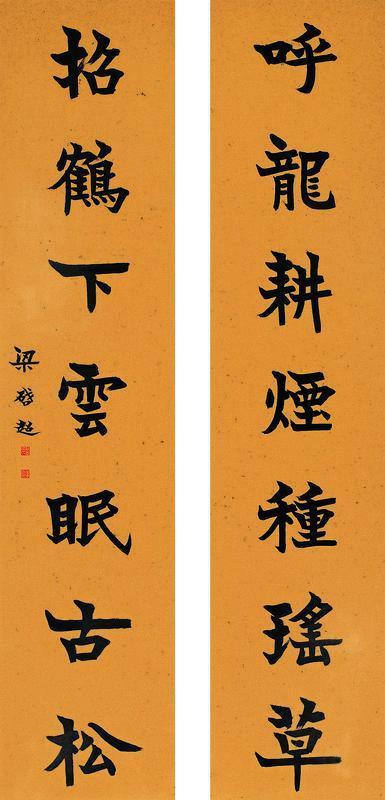 呼龍耕煙種瑤草
招鶴下雲眠古松
梁啓超